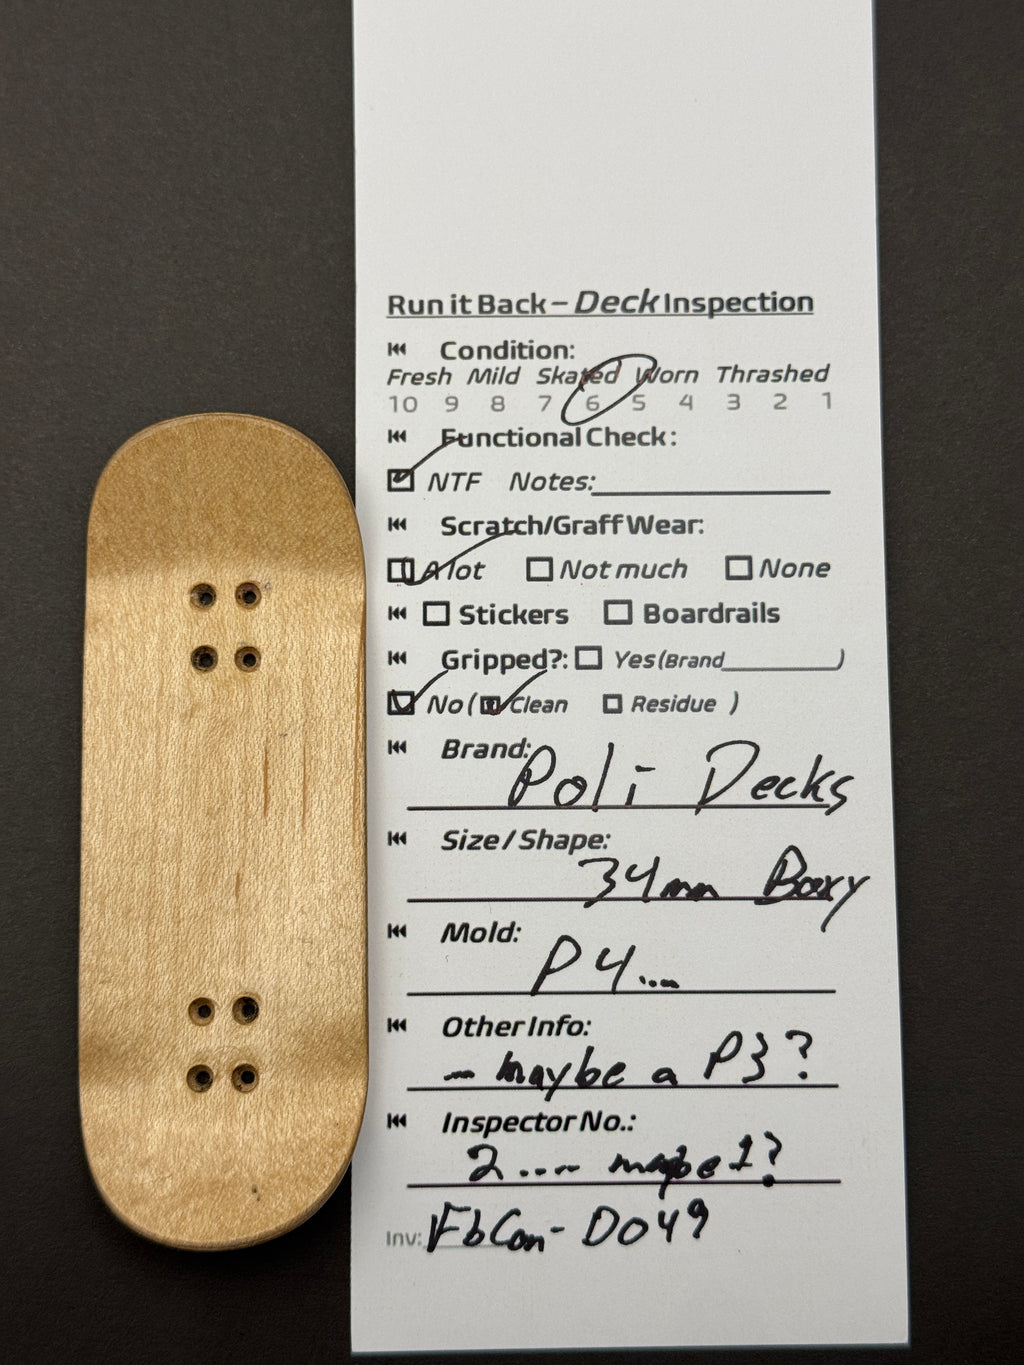 Run it Back – Deck Inspection
Condition:
Fresh Mild Skated Worn Thrashed
10 9 8 7 6 5 4 3 2 1
Functional Check:
NTF Notes:
Scratch/Graff Wear:
A lot Not much None
Stickers Boardrails
Gripped?: Yes (Brand )
No ( Clean Residue )
Brand:
Poli Decks
Size / Shape:
34mm Boxy
Mold:
P4...
Other Info:
- maybe a P3?
Inspector No.:
2 .... maybe 1?
Inv: FbCon- D049